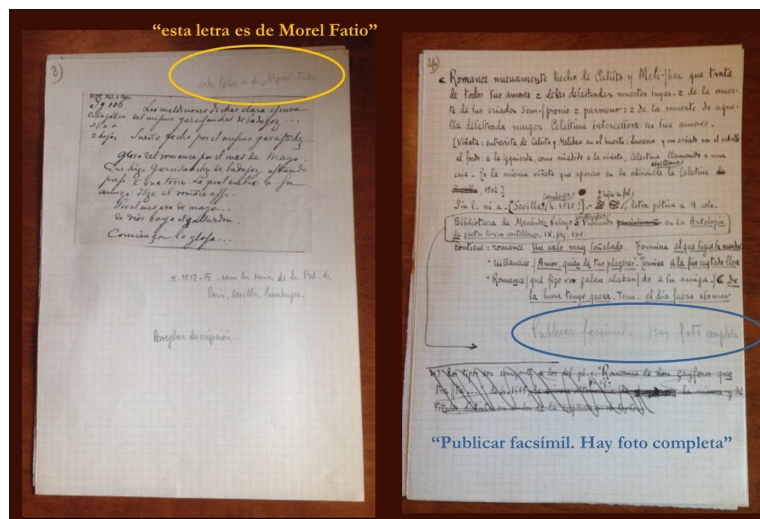 “esta letra es de Morel Fatio”
3)
esta letra es de Morel-Fatio
Las metticiones dichas clara escura
en mismo garcisanches de badajoz ...
2 hojas Sueño hecho por el mismo garcisanchez...
Glosa del romance por el mes de Mayo.
Que hizo Garcisanchez de badajoz estando
preso z una torre. La qual enbio a su
amiga: dize el romance assi.
Por el mes era de mayo...
Comiença la glosa...
H. 1512-15. como los demás de la Bib. de
París, Sevilla, Cromberger.
Arreglar descripción.
4)
Romance nueuamente hecho de Calisto y Meli-/bea que trata
de todos sus amores z delas desastradas muertes suyas. z de la muer-
te de sus criados Sem-/pronio z parmeno: z de la muerte de aque-
lla desastrada muger Celestina intercessora en sus amores.
[Viñeta: entrevista de Calisto y Melibea en el huerto: Lucrecia y un criado con el caballo
al fondo: a la izquierda, como añadido a la viñeta, Celestina llamando a una
casa. Es la misma viñeta que aparece en la edición de la Celestina de
sevillana
1502]
S. l. ni a. [Sevilla, h. 1510?].- letra gótica a 4 cols.
Biblioteca de Menéndez Pelayo. Publicado en la Antología
de poetas líricos castellanos, IX, pág. 
contiene: romance Un caso muy señalado. Termina
Villancico / Amor, quien de tus plazeres. Termina a la fin cuytado llora
Romance / que fizo vn galan alaban/do a su amiga. / De
la luna tengo quexa. Term. el dia fuera assomar
Publicar facsímil. Hay foto completa
“Publicar facsímil. Hay foto completa”